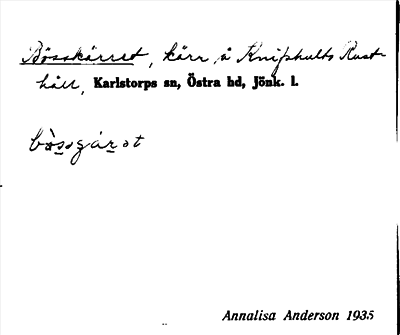 Bösskärret, kärr å Knifshults Rust-
håll, Karlstorps sn, Östra hd, Jönk. l.
bòssgárət
Annalisa Anderson 1935